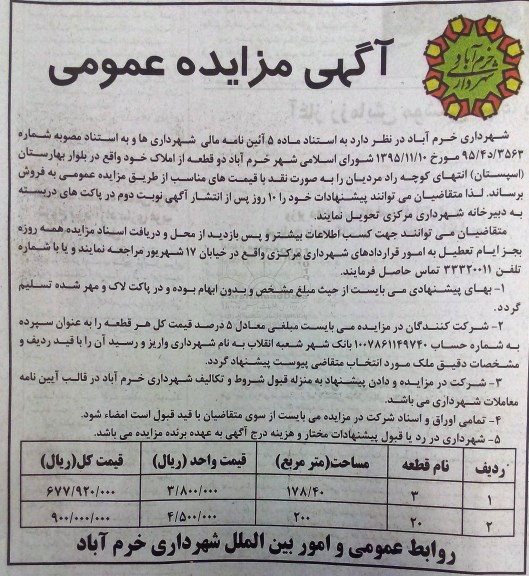 خرم آباد
شهرداری
آگهی مزایده عمومی
شهرداری خرم آباد در نظر دارد به استناد ماده ۵ آئین نامه مالی شهرداری ها و به استناد مصوبه شماره
۹۵/۴۵/۳۵۶۳ مورخ ۱۳۹۵/۱۱/۱۰ شورای اسلامی شهر خرم آباد دو قطعه از املاک خود واقع در بلوار بهارستان
(اسپستان) انتهای کوچه راد مردیان را به صورت نقد با قیمت های مناسب از طریق مزایده عمومی به فروش
برساند. لذا متقاضیان می توانند پیشنهادات خود را ۱۰ روز پس از انتشار آگهی نوبت دوم در پاکت های دربسته
به دبیرخانه شهرداری مرکزی تحویل نمایند.
متقاضیان می توانند جهت کسب اطلاعات بیشتر و پس بازدید از محل و دریافت اسناد مزایده همه روزه
بجز ایام تعطیل به امور قراردادهای شهرداری مرکزی واقع در خیابان ۱۷ شهریور مراجعه نمایند و یا با شماره
تلفن ۳۳۳۲۰۰۱۱ تماس حاصل فرمایند.
۱- بهای پیشنهادی می بایست از حیث مبلغ مشخص و بدون ابهام بوده و در پاکت لاک و مهر شده تسلیم
گردد.
۲- شرکت کنندگان در مزایده می بایست مبلغی معادل ۵ درصد قیمت کل هر قطعه را به عنوان سپرده
به شماره حساب ۱۰۰۷۸۶۱۱۴۹۷۴۰ بانک شهر شعبه انقلاب به نام شهرداری واریز و رسید آن را با قید ردیف و
مشخصات دقیق ملک مورد انتخاب متقاضی پیوست پیشنهاد گردد.
۳ - شرکت در مزایده و دادن پیشنهاد به منزله قبول شروط و تکالیف شهرداری خرم آباد در قالب آیین نامه
معاملات شهرداری می باشد.
۴- تمامی اوراق و اسناد شرکت در مزایده می بایست از سوی متقاضیان با قید قبول است امضاء شود.
۵- شهرداری در رد یا قبول پیشنهادات مختار و هزینه درج آگهی به عهده برنده مزایده می باشد.
ردیف نام قطعه مساحت(متر مربع) قیمت واحد (ریال) قیمت کل(ریال)
۱ ۳ ۱۷۸/۴۰ ۳/۸۰۰/۰۰۰ ۶۷۷/۹۲۰/۰۰۰
۲ ۲۰ ۲۰۰ ۴/۵۰۰/۰۰۰ ۹۰۰/۰۰۰/۰۰۰
روابط عمومی و امور بین الملل شهرداری خرم آباد